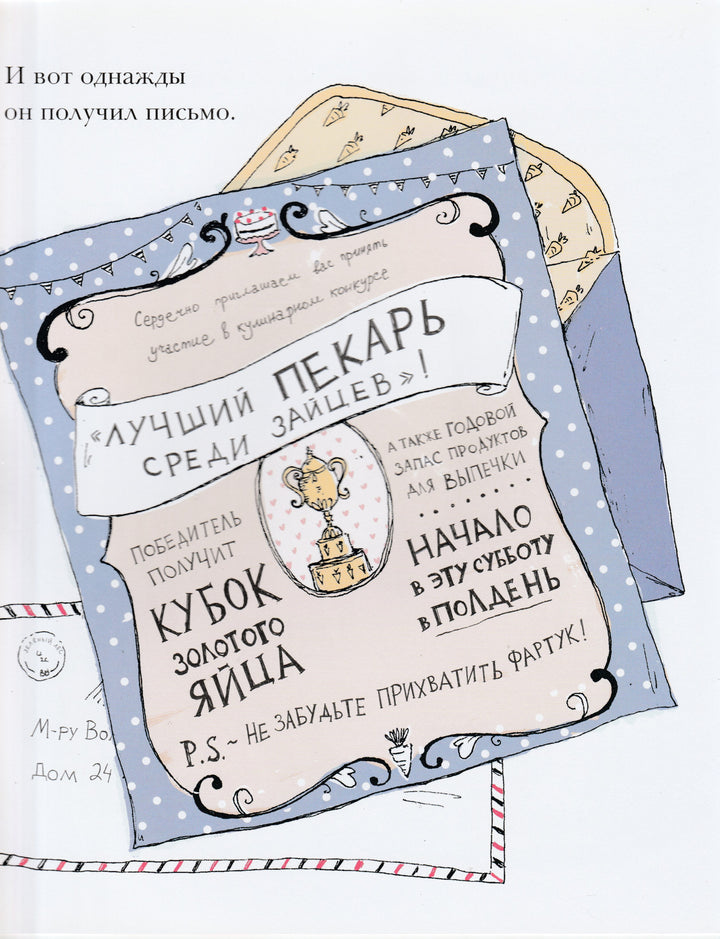 И вот однажды
он получил письмо.
Сердечно приглашаем вас принять
участие в кулинарном конкурсе
«ЛУЧШИЙ ПЕКАРЬ
СРЕДИ ЗАЙЦЕВ»!
ПОБЕДИТЕЛЬ
ПОЛУЧИТ
КУБОК
ЗОЛОТОГО
ЯЙЦА
А ТАКЖЕ ГОДОВОЙ
ЗАПАС ПРОДУКТОВ
ДЛЯ ВЫПЕЧКИ
НАЧАЛО
В ЭТУ СУББОТУ
В ПОЛДЕНЬ
P.S.~ НЕ ЗАБУДЬТЕ ПРИХВАТИТЬ ФАРТУК!
М-РУ
ДОМ 24